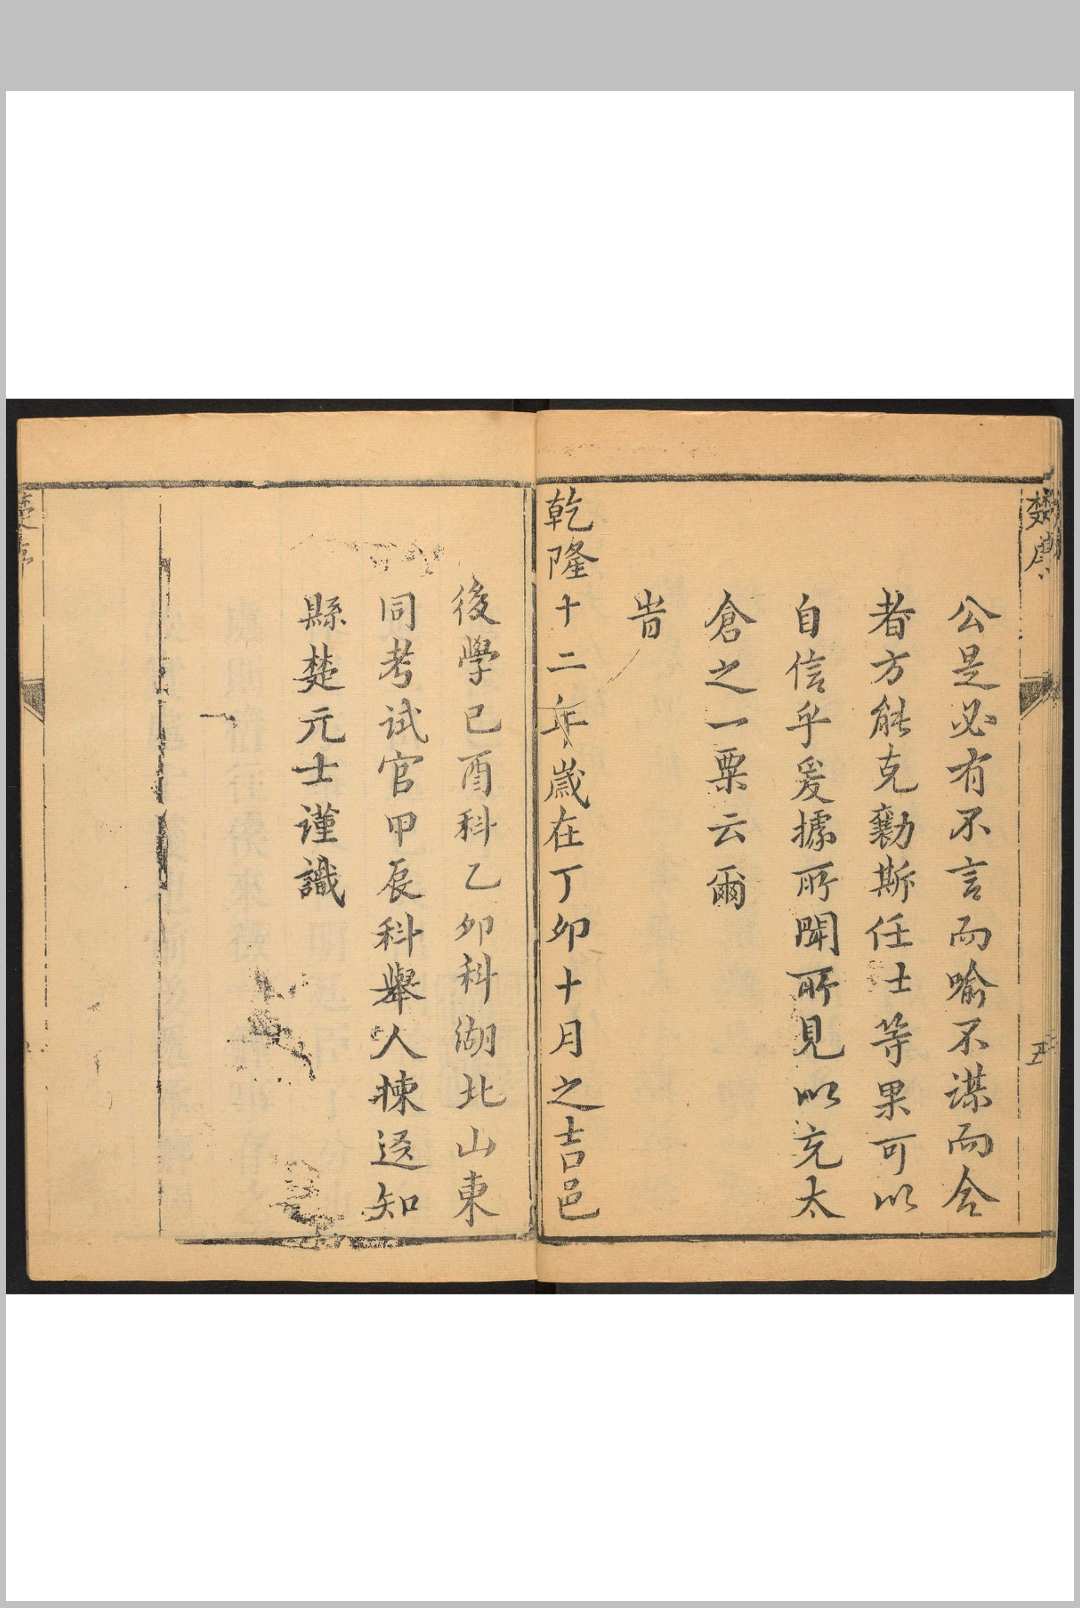 公是必有不言而喻不謀而合
者方能克勷斯任士等果可以
自信乎爰據所聞所見以充太
倉之一粟云爾
旹
乾隆十二年歲在丁卯十月之吉邑
後學己酉科乙卯科湖北山東
同考試官甲辰科舉人揀選知
縣楚元士謹識